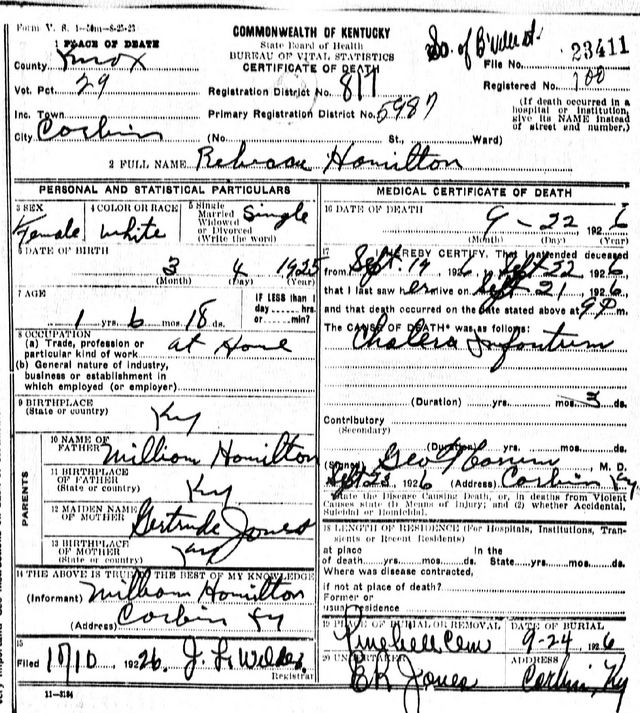 Form V. S. 1-50m-8-25-23
COMMONWEALTH OF KENTUCKY
State Board of Health
BUREAU OF VITAL STATISTICS
CERTIFICATE OF DEATH
So. of
File No. 23411
Registered No. 100
(If death occurred in a
hospital or institution,
give its NAME instead
of street and number.)
1 PLACE OF DEATH
County Knox
Vot. Pct. 29
Inc. Town
City Corbin
Registration District No. 817
Primary Registration District No. 5987
(No. St., Ward)
2 FULL NAME Rebecca Hamilton
PERSONAL AND STATISTICAL PARTICULARS
3 SEX
Female
4 COLOR OR RACE
White
5 Single
Married
Widowed
or Divorced
(Write the word)
Single
6 DATE OF BIRTH
3 4 1925
(Month) (Day) (Year)
7 AGE
1 yrs. 6 mos. 18 ds.
IF LESS than 1
day hrs.
or min?
8 OCCUPATION
(a) Trade, profession or
particular kind of work at Home
(b) General nature of industry,
business or establishment in
which employed (or employer)
9 BIRTHPLACE
(State or country) Ky
PARENTS
10 NAME OF
FATHER William Hamilton
11 BIRTHPLACE
OF FATHER
(State or country) Ky
12 MAIDEN NAME
OF MOTHER Gertrude Jones
13 BIRTHPLACE
OF MOTHER
(State or country) Ky
14 THE ABOVE IS TRUE TO THE BEST OF MY KNOWLEDGE
(Informant) William Hamilton
(Address) Corbin Ky
15
Filed 10/10 1926. J. L. Wilder
Registrar
11-3184
MEDICAL CERTIFICATE OF DEATH
16 DATE OF DEATH
9-22 1926
(Month) (Day) (Year)
17 I HEREBY CERTIFY, That I attended deceased
from Sept. 19 1926, to Sept 22 1926,
that I last saw her alive on Sept 21 1926
and that death occurred on the date stated above at 9 P m.
The CAUSE OF DEATH* was as follows:
Cholera Infantum
(Duration) yrs. mos. 3 ds.
Contributory
(Secondary)
(Duration) yrs. mos. ds.
(Signed) Geo M. D.
Sept 23, 1926 (Address) Corbin Ky.
State the Disease Causing Death, or, in deaths from Violent
Causes state (1) Means of Injury; and (2) whether Accidental,
Suicidal or Homicidal.
18 LENGTH OF RESIDENCE (For Hospitals, Institutions, Tran-
sients or Recent Residents)
at place In the
of death yrs. mos. ds. State yrs. mos. ds.
Where was disease contracted,
if not at place of death?
Former or
usual residence
19 PLACE OF BURIAL OR REMOVAL
Pinehill Cem
DATE OF BURIAL
9-24 1926
20 UNDERTAKER
B K Jones
ADDRESS
Corbin, Ky